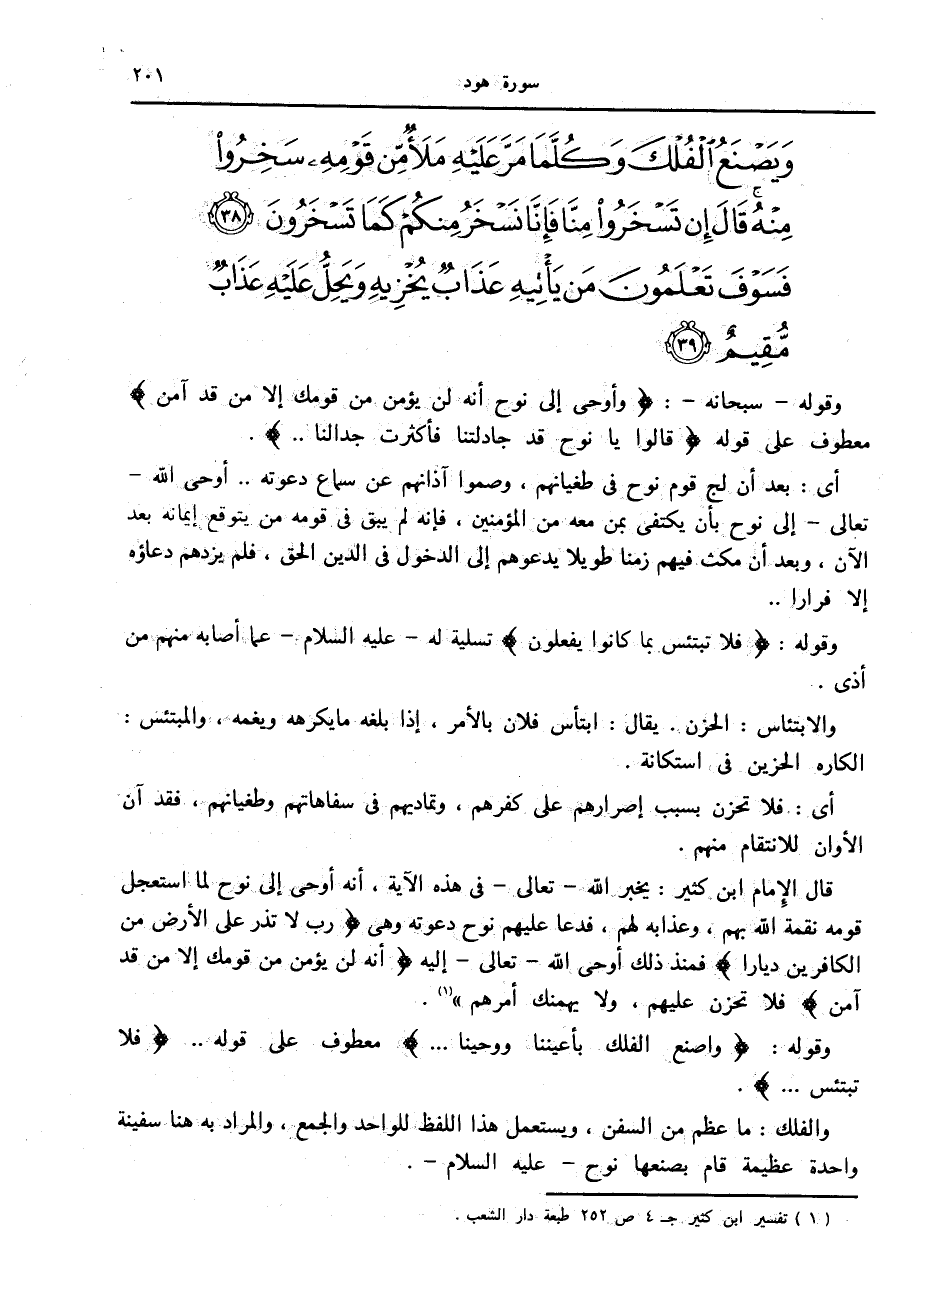 سورة هود
٢٠١
وَيَصْنَعُ ٱلْفُلْكَ وَكُلَّمَا مَرَّ عَلَيْهِ مَلَأٌ مِّن قَوْمِهِۦ سَخِرُوا۟
مِنْهُ ۚ قَالَ إِن تَسْخَرُوا۟ مِنَّا فَإِنَّا نَسْخَرُ مِنكُمْ كَمَا تَسْخَرُونَ ٣٨
فَسَوْفَ تَعْلَمُونَ مَن يَأْتِيهِ عَذَابٌ يُخْزِيهِ وَيَحِلُّ عَلَيْهِ عَذَابٌ
مُّقِيمٌ ٣٩
وقوله – سبحانه – : ﴿ وأوحى إلى نوح أنه لن يؤمن من قومك إلا من قد آمن ﴾
معطوف على قوله ﴿ قالوا يا نوح قد جادلتنا فأكثرت جدالنا .. ﴾ .
أى : بعد أن لج قوم نوح فى طغيانهم ، وصموا آذانهم عن سماع دعوته .. أوحى الله –
تعالى – إلى نوح بأن يكتفى بمن معه من المؤمنين ، فإنه لم يبق فى قومه من يتوقع إيمانه بعد
الآن ، وبعد أن مكث فيهم زمنا طويلا يدعوهم إلى الدخول فى الدين الحق ، فلم يزدهم دعاؤه
إلا فرارا ..
وقوله : ﴿ فلا تبتئس بما كانوا يفعلون ﴾ تسلية له – عليه السلام – عما أصابه منهم من
أذى .
والابتئاس : الحزن . يقال : ابتأس فلان بالأمر ، إذا بلغه مايكرهه ويغمه ، والمبتئس :
الكاره الحزين فى استكانة .
أى : فلا تحزن بسبب إصرارهم على كفرهم ، وتماديهم فى سفاهاتهم وطغيانهم ، فقد آن
الأوان للانتقام منهم .
قال الإمام ابن كثير : يخبر الله – تعالى – فى هذه الآية ، أنه أوحى إلى نوح لما استعجل
قومه نقمة الله بهم ، وعذابه لهم ، فدعا عليهم نوح دعوته وهى ﴿ رب لا تذر على الأرض من
الكافرين ديارا ﴾ فمنذ ذلك أوحى الله – تعالى – إليه ﴿ أنه لن يؤمن من قومك إلا من قد
آمن ﴾ فلا تحزن عليهم ، ولا يهمنك أمرهم »(١) .
وقوله : ﴿ واصنع الفلك بأعيننا ووحينا ... ﴾ معطوف على قوله .. ﴿ فلا
تبتئس ... ﴾ .
والفلك : ما عظم من السفن ، ويستعمل هذا اللفظ للواحد والجمع ، والمراد به هنا سفينة
واحدة عظيمة قام بصنعها نوح – عليه السلام – .
( ١ ) تفسير ابن كثير جـ ٤ ص ٢٥٢ طبعة دار الشعب .